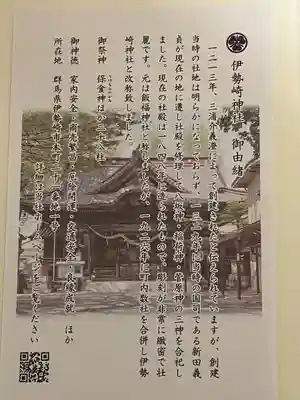 伊勢崎神社 御由緒
一二一三年、三浦介義澄によって創建されたと伝えられていますが、創建
当時の社地は明らかになっておらず、一三二九年に当時の国司である新田義
貞が現在の地に遷し社殿を修理して八坂神・稲荷神・菅原神の三神を合祀し
ました。現在の社殿は一八四八年に造られたもので、彫刻が非常に緻密で壮
麗です。元は飯福神社と称しましたが、一九二六年に町内数社を合併し伊勢
崎神社と改称致しました。
御祭神 保食神ほか二十八柱
御神徳 家内安全・商売繁盛・厄除開運・交通安全・良縁成就 ほか
所在地 群馬県伊勢崎市本町二十一番地一
詳細は当社ホームページをご覧ください